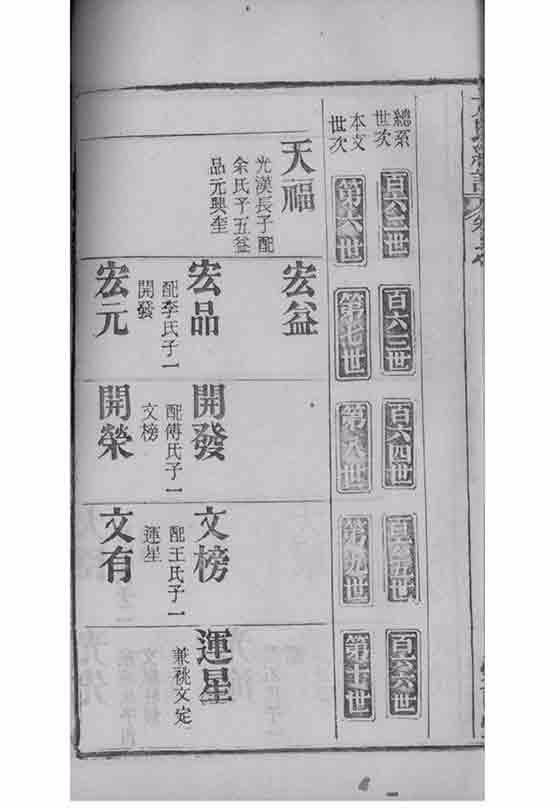 總系世次
本文世次
百六二世
第六世
天福
光漢長子配
余氏子五益
品元興奎
百六三世
第七世
宏益
宏品
配李氏子一
開發
宏元
百六四世
第八世
開發
配傅氏子一
文榜
開榮
百六五世
第九世
文榜
配王氏子一
運星
文有
百六六世
第十世
運星
兼祧文定